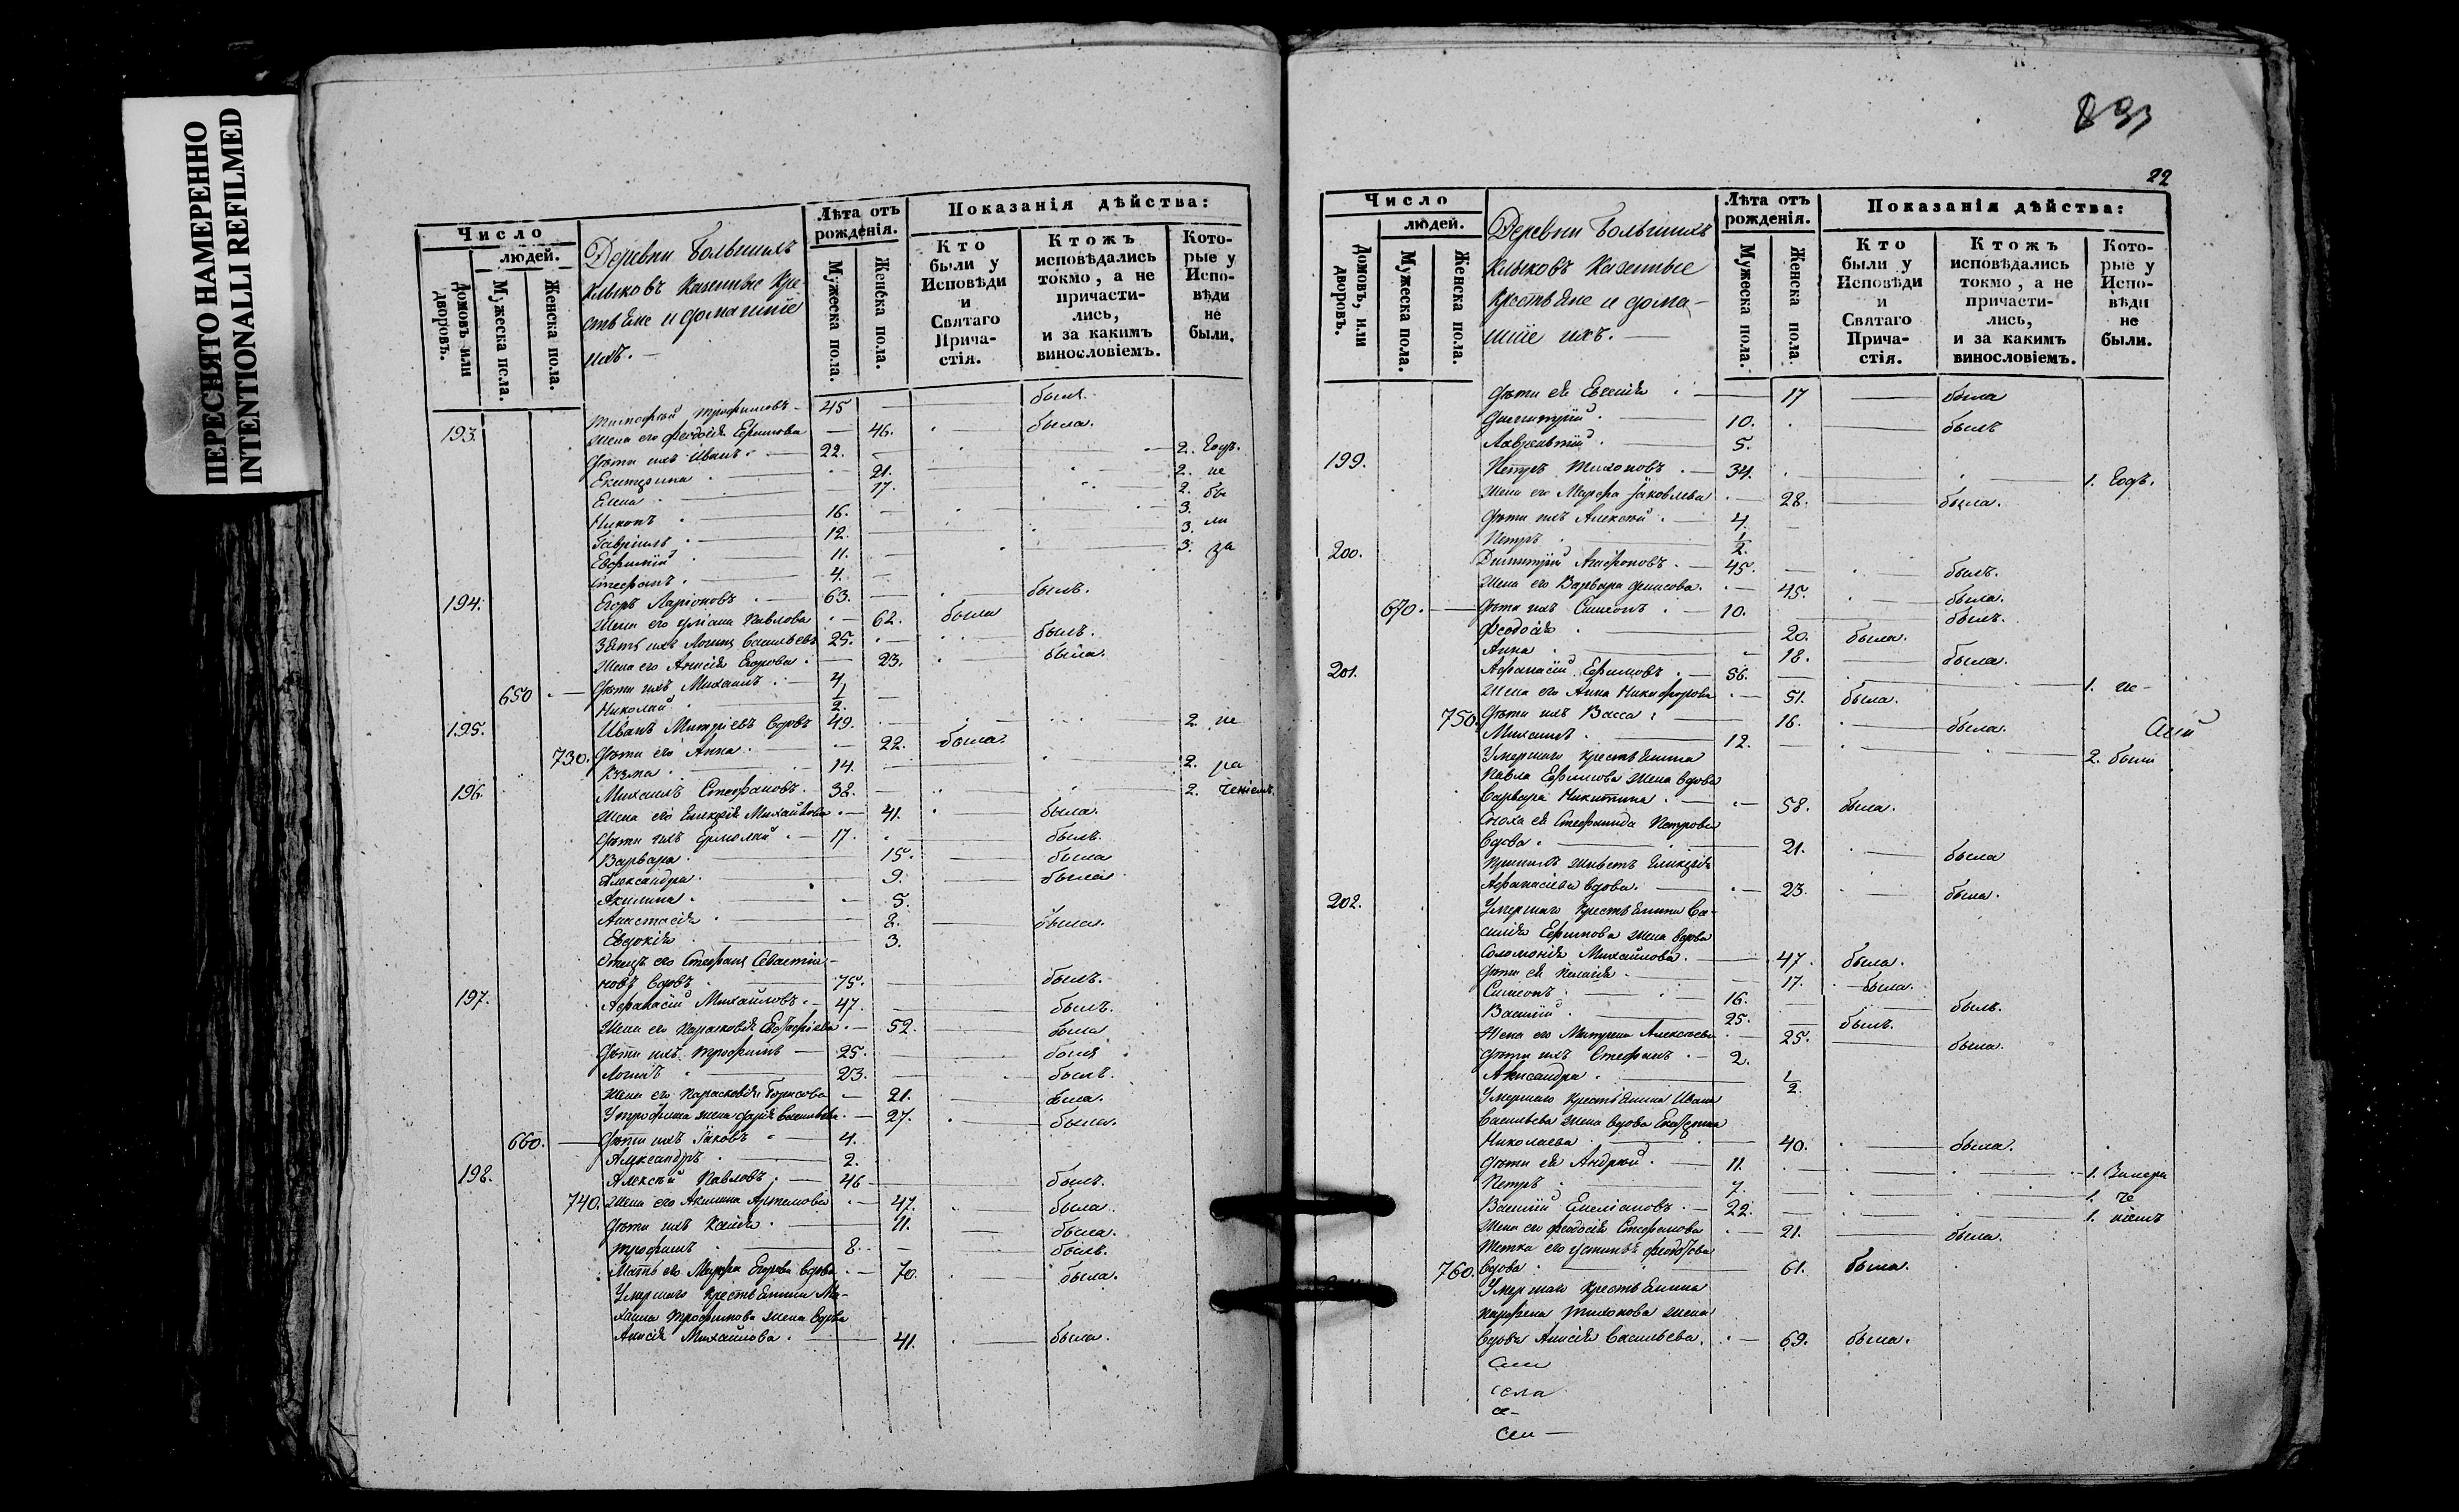 ПЕРЕСНЯТО НАМЕРЕННО
INTENTIONALLI REFILMED
Число
людей.
Домовъ или дворовъ.
Мужеска пола.
Женска пола.
Деревни Большихъ
Клыковъ Казенные Кре-
стьяне и домашніе
ихъ. —
Лѣта отъ рожденія.
Мужеска пола.
Женска пола.
Показанія дѣйства:
Кто были у Исповѣди и Святаго Прича-стія.
Ктожъ исповѣдались токмо, а не причасти-лись, и за какимъ винословіемъ.
Кото-рые у Испо-вѣди не были.
193. Тимофей Трофимовъ 45 былъ.
Жена его Феодосія Ефимова 46. была.
Дѣти ихъ Иванъ 22. 2. Годъ.
Екатерина 21. 2. не
Елена 17. 2. бы
Никонъ 16. 3.
Гавріилъ 12. 3. ли
Евфимій 11. 3. за
Стефанъ 4.
194. Егоръ Ларіоновъ 63. былъ.
Жена его Уліана Павлова 62. была
Зять ихъ Логинъ Васильевъ 25. былъ.
Жена его Анисія Егорова 23. была.
650 Дѣти ихъ Михаилъ 4
Николай 1/2.
195. Иванъ Митріевъ вдовъ 49. 2. не
730. Дѣти его Анна 22. была.
Кузма 14. 2. ра
196. Михаилъ Стефановъ 38. 2. ченіемъ.
Жена его Гликерія Михайлова 41. была.
Дѣти ихъ Ермолай 17. былъ.
Варвара 15. была
Александра 9. была
Акилина 5.
Анастасія 2. была.
Евдокія 3.
Отецъ его Стефанъ Севастія-
новъ вдовъ 75. былъ.
197. Афанасій Михайловъ 47. былъ.
Жена его Парасковія Евстафіева 52. была
Дѣти ихъ Трофимъ 25. былъ
Логинъ 23. былъ.
Жена его Парасковія Борисова 21. была.
У Трофима жена Дарія Васильева 27. была.
660. Дѣти ихъ Іаковъ 4.
Александръ 2.
198. Алексѣй Павловъ 46 былъ.
740. Жена его Акилина Артемова 47. была.
Дѣти ихъ 11. была.
Трофимъ 8. былъ.
Мать его Марфа Егорова вдова 70. была.
Умершаго крестьянина Ми-
хаила Трофимова жена вдова
Анисія Михайлова 41. была.
833
22
Число
людей.
Домовъ, или дворовъ.
Мужеска пола.
Женска пола.
Деревни Большихъ
Клыковъ Казенные
Крестьяне и дома-
шніе ихъ. —
Лѣта отъ рожденія.
Мужеска пола.
Женска пола.
Показанія дѣйства:
Кто были у Исповѣди и Святаго Прича-стія.
Ктожъ исповѣдались токмо, а не причасти-лись, и за какимъ винословіемъ.
Кото-рые у Испо-вѣди не были.
Дѣти ея Евгенія 17 была
Димитрій 10. былъ
Лаврентій 5.
199. Петръ Тихоновъ 34. 1. Годъ.
Жена его Марфа Іаковлева 28. была.
Дѣти ихъ Алексѣй 4.
Петръ 1/2.
200. Димитрій Агафоновъ 45. былъ.
Жена его Варвара Денисова 45. была.
670. Дѣти ихъ Симеонъ 10. былъ.
Феодосія 20. была.
Анна 18. была.
201. Афанасій Ефимовъ 56. 1. не-
Жена его Анна Никифорова 51. была.
750. Дѣти ихъ Васса 16. была.
Михаилъ 12. 2. были
Умершаго Крестьянина
Павла Ефимова жена вдова
Варвара Никитина 58. была.
Сноха ея Стефанида Петрова
вдова 21. была
Пришлъ живетъ Гликерія
Афанасіева вдова. 23. была.
202. Умершаго Крестьянина Ва-
силія Ефимова жена вдова
Соломонія Михайлова. 47. была.
Дѣти ея Пелагія 17. была.
Симеонъ 16. былъ.
Василій 25. былъ.
Жена его Матрена Алексѣева 25. была.
Дѣти ихъ Стефанъ 2.
Александра 1/2.
Умершаго Крестьянина Ивана
Васильева жена вдова Екатерина
Николаева 40. была.
Дѣти ея Андрей 11. 1.
Петръ 7. 1.
Василій Емеліановъ 22. 1.
Жена его Феодосія Стефанова 21. была.
Тетка его Устинья Федотова
760. вдова 61. была.
Умершаго Крестьянина
Парфена Тихонова жена
вдова Анисія Васильева 69. была.